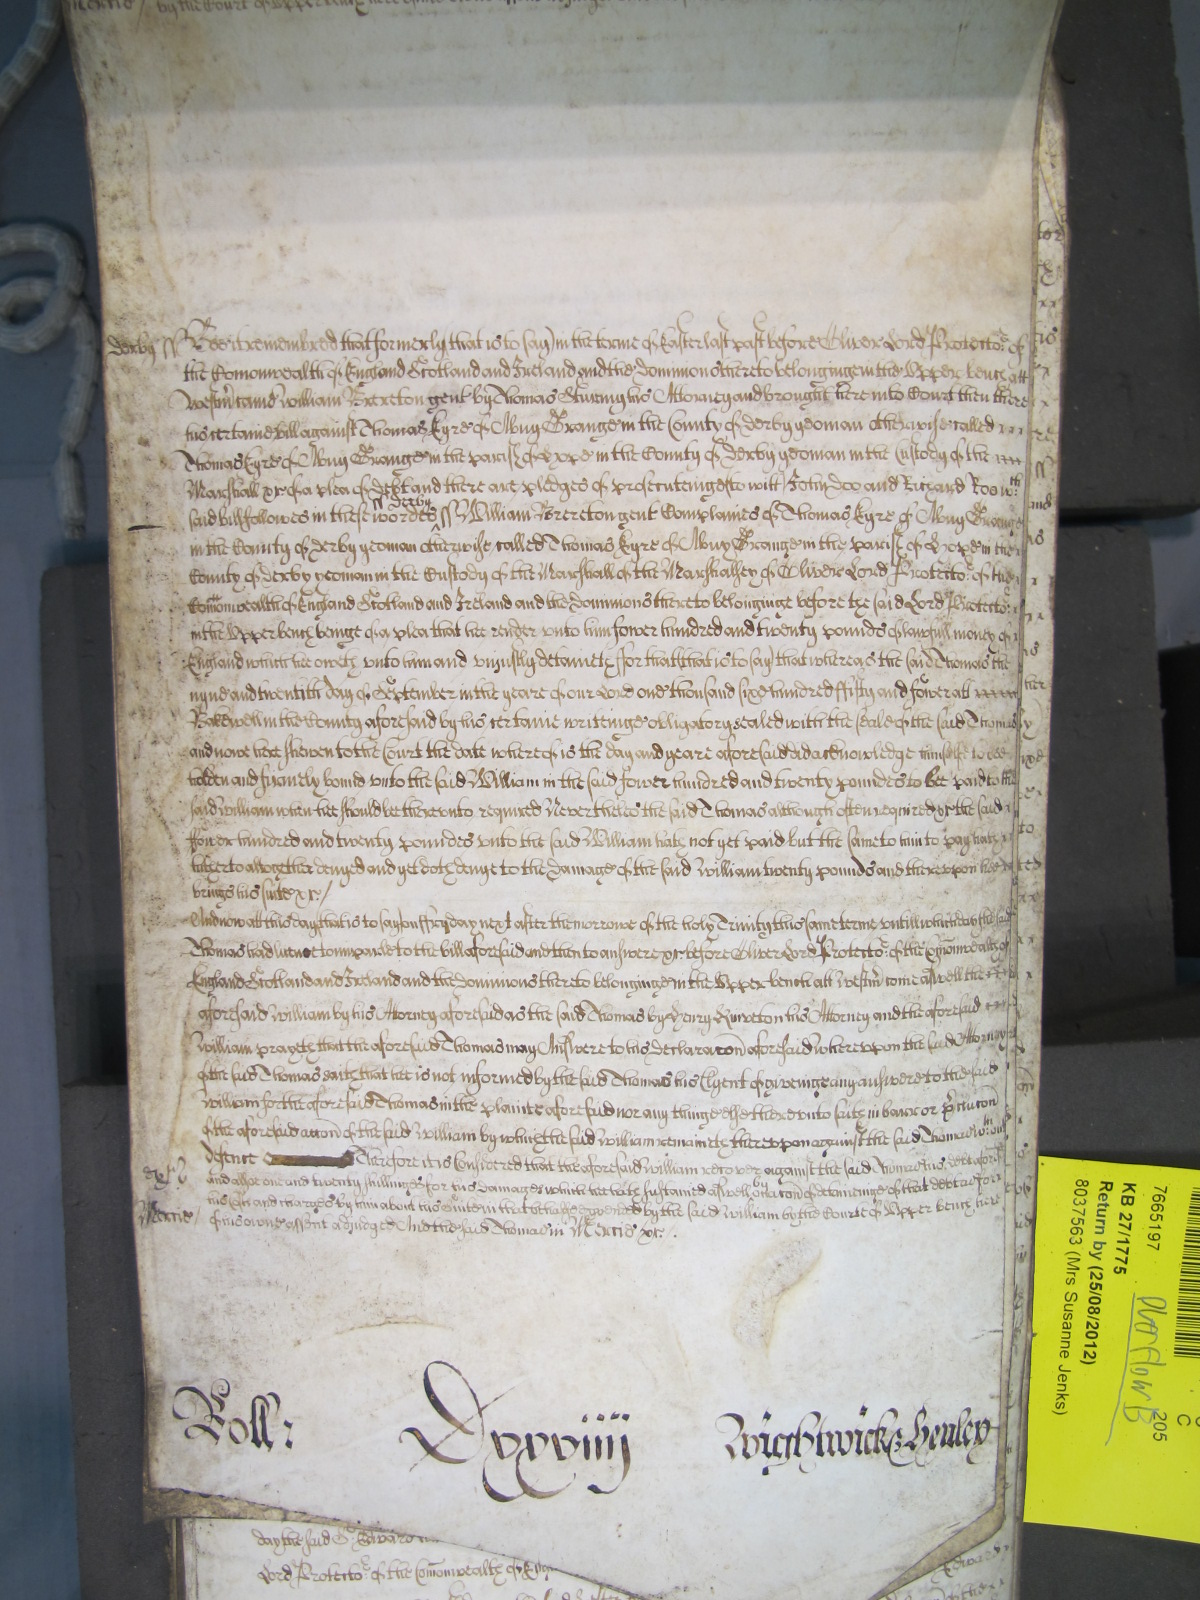 Derby ss Bee it remembred that formerly that is to say in the terme of Easter last past before Oliver Lord Protector of
the Comonwealth of England Scotland and Ireland and the Dominions thereto belonginge in the Upper bench att
Westmr came William Brereton gent by Thomas his Attorney and brought here into Court then there
his certaine bill against Thomas Eyre of Abny Grange in the County of Derby yeoman otherwise called
Thomas Eyre of Abny Grange in the parish of Hope in the County of Derby yeoman in the Custody of the
Marshall &c of a plea of debt and there are pledges of prosecuteinge to witt John Doo and Richard Roo wch
said bill followes in these wordes ss Derby ss William Brereton gent Complaines of Thomas Eyre of Abny Grange
in the County of Derby yeoman otherwise called Thomas Eyre of Abny Grange in the parish of Hope in the
County of Derby yeoman in the Custody of the Marshall of the Marshalsey of Oliver Lord Protector of the
Comonwealth of England Scotland and Ireland and the Dominions thereto belonginge before the said Lord Protector
in the Upper bench beinge of a plea that hee render unto him fower hundred and twenty pounds of lawfull money of
England which hee oweth unto him and unjustly deteineth for that that is to say that whereas the said Thomas the
nyne and twentith day of September in the yeare of our Lord one thousand six hundred fifty and fower att
Bakewell in the County aforesaid by his certaine writeinge obligatory sealed with the seale of the said Thomas
and nowe here shewen to the Court the date whereof is the day and yeare aforesaid did acknowledge himselfe to bee
holden and firmely bound unto the said William in the said fower hundred and twenty poundes to bee paid to the
said William when hee should be thereunto required Neverthelesse the said Thomas although often required &c the said
ffower hundred and twenty poundes unto the said William hath not yet paid but the same to him to pay hath
hitherto altogether denyed and yet doth denye to the damage of the said William twenty pounds and thereupon hee
brings his suite &c /
And now att this day that is to say on ffryday next after the morrowe of the holy Trinity this same terme untill which day the said
Thomas had licence to imparle to the bill aforesaid and then to answere &c before Oliver Lord Protector of the Comonwealth of
England Scotland and Ireland and the Dominions thereto belonginge in the Upper bench att Westmr come aswell the
aforesaid William by his Attorney aforesaid as the said Thomas by Henry his Attorney and the aforesaid
William prayeth that the aforesaid Thomas may Answere to his declaracon aforesaid whereupon the said Attorney
of the said Thomas saith that hee is not informed by the said Thomas his Clyent of giveinge any answere to the said
William for the aforesaid Thomas in the plainte aforesaid nor any thinge else thereunto saith in barr or
of the aforesaid accon of the said William by which the said William remaineth thereupon against the said Thomas without
defence Therefore it is Considered that the aforesaid William recover against the said Thomas his debt aforesaid
and alsoe one and twenty shillinges for his damages which hee hath susteined aswell by occacon of deteineinge of that debt as for
his costs and charges by him about his suite in that behalfe expended by the said William by the Court of Upper bench here
Mercie / of his owne assent adjudged And the said Thomas in Mercie &c /.
Roll: Dxxxviiij Wightwicke & Henley
day the said Sr Edward
Lord Protector of the Comonwealth of Eng
7665197
KB 27/1775
Return by (25/08/2012)
8037563 (Mrs Susanne Jenks)
Overflow B
205
C